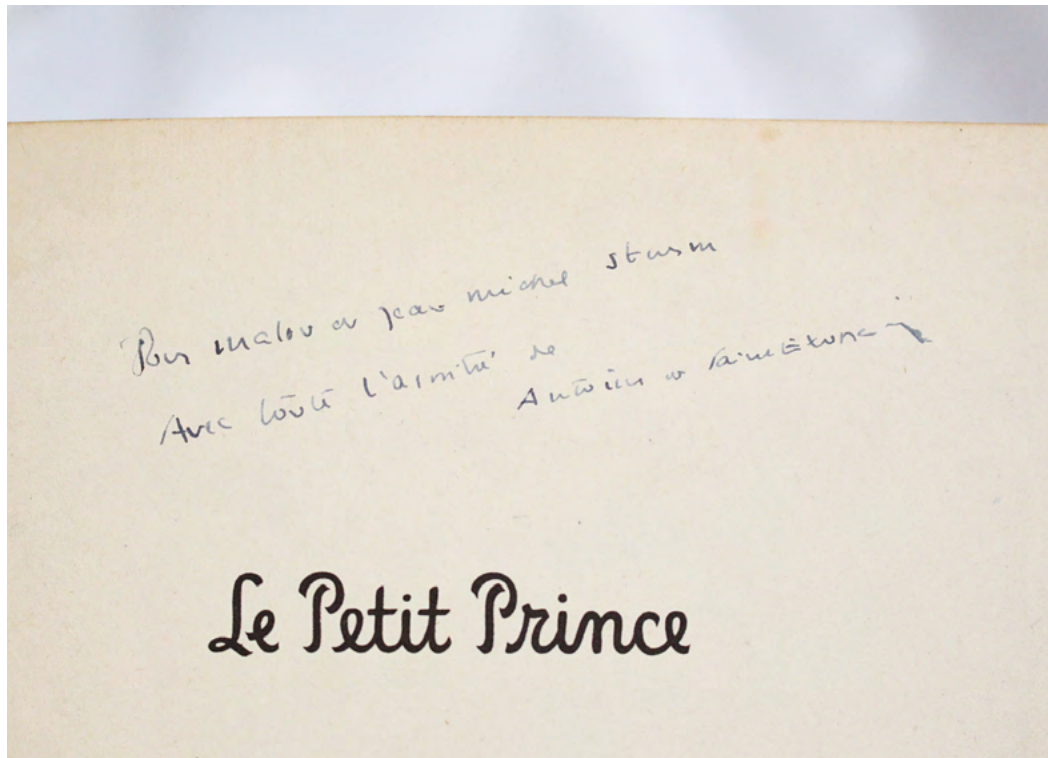 Pour malou et jean michel sturm
Avec toute l'amitié de
Antoine de Saint Exupéry
Le Petit Prince